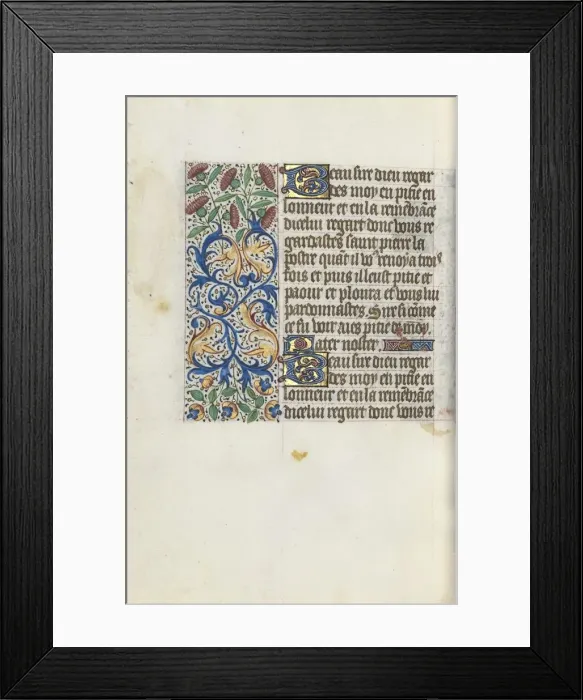 Beau sire dieu regar
des moy en pitie en
lonneur et en la remēbrāce
dicelui regart donc vous re
gardastes saint pierre la
postre quāt il vous renoya trois
fois et puis il eust pitie et
paour et ploura et vous lui
pardonnastes. Sire si cōme
ce fu voir aies pitie de moy.
Pater noster.
Beau sire dieu regar
des moy en pitie en
lonneur et en la remēbrāce
dicelui regart donc vous re